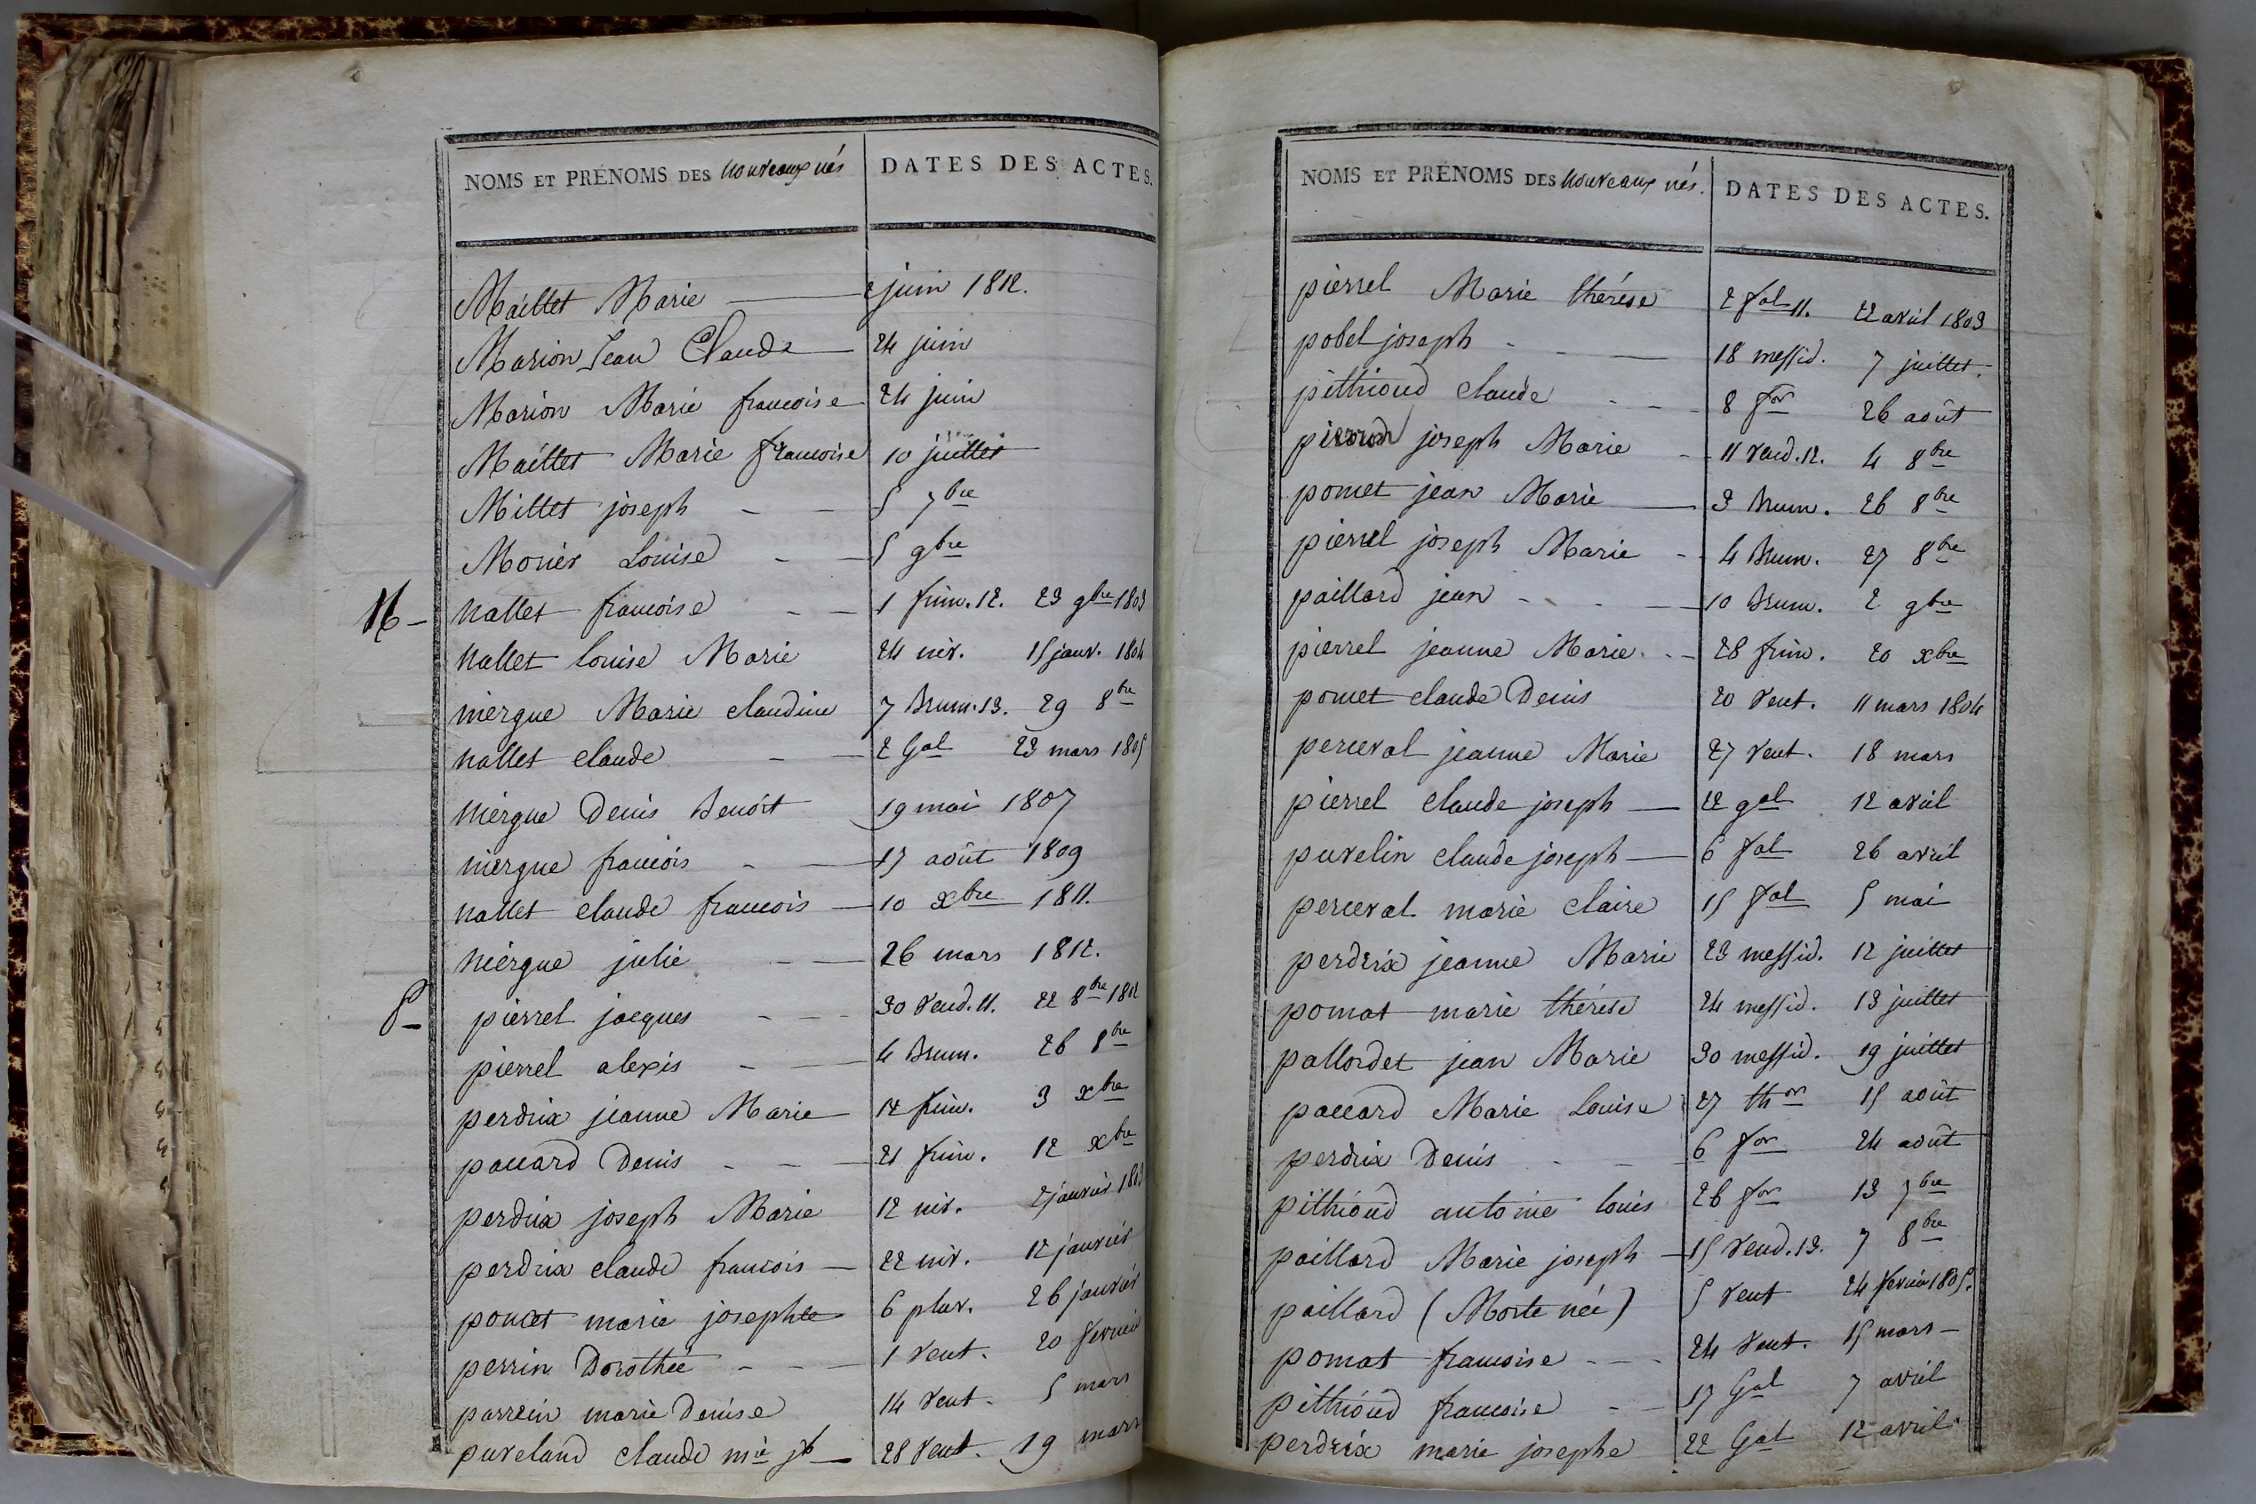 NOMS ET PRÉNOMS DES nouveaux nés DATES DES ACTES.
Maillet Marie 2 juin 1812.
Marion Jean Claude 24 juin
Marion Marie francoise 24 juin
Maillet Marie francoise 10 juillet
Millet joseph 5 7bre
Monier Louise 5 9bre
N nallet francoise 1 frim. 12. 23 9bre 1803
nallet louise Marie 24 niv. 15 janv. 1804
niergue Marie claudine 7 Brum. 13. 29 8bre
nallet claude 2 Gal 23 mars 1805
niergue Denis Benoit 19 mai 1807
niergue francois 17 août 1809
nallet claude francois 10 xbre 1811.
niergue julie 26 mars 1812.
P pierrel jacques 30 vend. 11. 22 8bre 1802
pierrel alexis 4 Brum. 26 8bre
perdrix jeanne Marie 12 frim. 3 xbre
paccard Denis 21 frim. 12 xbre
perdrix joseph Marie 12 niv. 2 janvier 1803
perdrix claude francois 22 niv. 12 janvier
poncet marie josephte 6 pluv. 26 janvier
perrin Dorothée 1 vent. 20 fevrier
perrein marie Denise 14 vent. 5 mars
puveland claude mie jh 28 vent. 19 mars
NOMS ET PRÉNOMS DES nouveaux nés. DATES DES ACTES.
pierrel Marie thérèse 2 fal 11. 22 avril 1803
pobel joseph 18 messid. 7 juillet.
pithioud claude 8 for 26 août
joseph Marie 11 vend. 12. 4 8bre
pomet jean Marie 3 Brum. 26 8bre
pierrel joseph Marie 4 Brum. 27 8bre
paillard jean 10 Brum. 2 9bre
pierrel jeanne Marie 28 frim. 20 xbre
pomet claude Denis 20 vent. 11 mars 1804
perceval jeanne Marie 27 vent. 18 mars
pierrel claude joseph 22 gal 12 avril
puvelin claude joseph 6 fal 26 avril
perceval marie claire 15 fal 5 mai
perdrix jeanne Marie 23 messid. 12 juillet
pomat marie thérèse 24 messid. 13 juillet
pallordet jean Marie 30 messid. 19 juillet
paccard Marie Louise 27 thor 15 août
perdrix Denis 6 for 24 août
pithioud antoine louis 26 for 13 7bre
paillard Marie joseph 15 vend. 13. 7 8bre
paillard (Morte née) 5 vent 24 fevrier 1805.
pomat francoise 24 vent. 15 mars
pithioud francoise 17 Gal 7 avril
perdrix marie josephe 22 Gal 12 avril